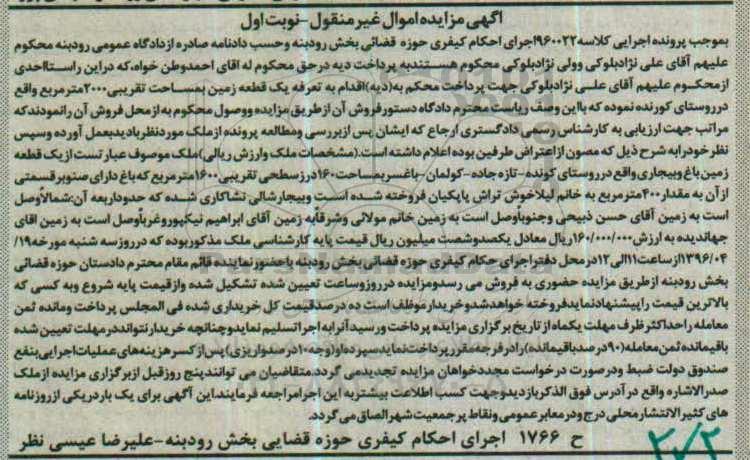 آگهی مزایده اموال غیرمنقول-نوبت اول
بموجب پرونده اجرایی کلاسه ۹۶۰۰۲۲اجرای احکام کیفری حوزه قضائی بخش رودبنه وحسب دادنامه صادره ازدادگاه عمومی رودبنه محکوم
علیهم آقای علی نژادبلوکی وولی نژادبلوکی محکوم هستندبه پرداخت دیه درحق محکوم له اقای احمدوطن خواه،که دراین راستااحدی
ازمحکوم علیهم آقای علی نژادبلوکی جهت پرداخت محکم به(دیه)اقدام به تعرفه یک قطعه زمین بمساحت تقریبی۲۰۰۰مترمربع واقع
درروستای کورنده نموده که بااین وصف ریاست محترم دادگاه دستورفروش آن ازطریق مزایده ووصول محکوم به ازمحل فروش آن رانمودندکه
مراتب جهت ارزیابی به کارشناس رسمی دادگستری ارجاع که ایشان پس ازبررسی ومطالعه پرونده ازملک موردنظربازدیدبعمل آورده وسپس
نظرخودرابه شرح ذیل که مصون ازاعتراض طرفین بوده اعلام داشته است.(مشخصات ملک وارزش ریالی)ملک موصوف عبارتست ازیک قطعه
زمین باغ وبیجاری واقع درروستای کونده-تازه جاده-کولمان-باغسربمساحت۱۶۰۰درزسطحی تقریبی۱۶۰۰مترمربع که باغ دارای صنوبرقسمتی
ازآن به مقدار۴۰۰مترمربع به خانم لیلاخوش تراش پاپکیان فروخته شده است وبیجارشالی نشاکاری شده که حدوداربعه آن:شمالاًوصل
است به زمین آقای حسن ذبیحی وجنوباوصل است به زمین خانم مولائی وشرقاًبه زمین آقای ابراهیم نیکپوروغرباًوصل است به زمین اقای
جهاندیده به ارزش۱۶۰/۰۰۰/۰۰۰ریال معادل یکصدوشصت میلیون ریال قیمت پایه کارشناسی ملک مذکوربوده که درروزسه شنبه مورخه۱۹/
۱۳۹۶/۰۴ازساعت۱۱الی۱۲درمحل دفتراجرای حکام کیفری حوزه قضائی بخش رودبنه باحضورنماینده قائم مقام محترم دادستان حوزه قضائی
بخش رودبنه ازطریق مزایده حضوری به فروش می رسدومزایده درروزوساعت تعیین شده تشکیل شده وازقیمت پایه شروع وبه کسی که
بالاترین قیمت راپیشنهادنمایدفروخته خواهدشدوخریدارموظف است ده درصدقیمت کل خریداری شده فی المجلس پرداخت ومانده ثمن
معامله راحداکثرظرف مهلت یکماه ازتاریخ برگزاری مزایده پرداخت ورسیدآنرابه اجراتسلیم نمایدوچنانچه خریدارنتوانددرمهلت تعیین شده
باقیمانده ثمن معامله(۹۰درصدباقیمانده)رادرفرجه مقررپرداخت نمایدسپرده او(وجه۱۰درصدواریزی)پس ازکسرهزینه های عملیات اجرایی بنفع
صندوق دولت ضبط ودرصورت درخواست مجددخواهان مزایده تجدیدمی گردد.متقاضیان می توانندپنج روزقبل ازبرگزاری مزایده ازملک
صدرالاشاره واقع درآدرس فوق الذکربازدیدوجهت کسب اطلاعت بیشتربه این اجرامراجعه فرمایند.این آگهی برای یک باردریکی ازروزنامه
های کثیرالانتشارمحلی درج ودرمعابرعمومی ونقاط پرجمعیت شهرالصاق می گردد.
ح ۱۷۶۶ اجرای احکام کیفری حوزه قضایی بخش رودبنه-علیرضا عیسی نظر
۳/۲